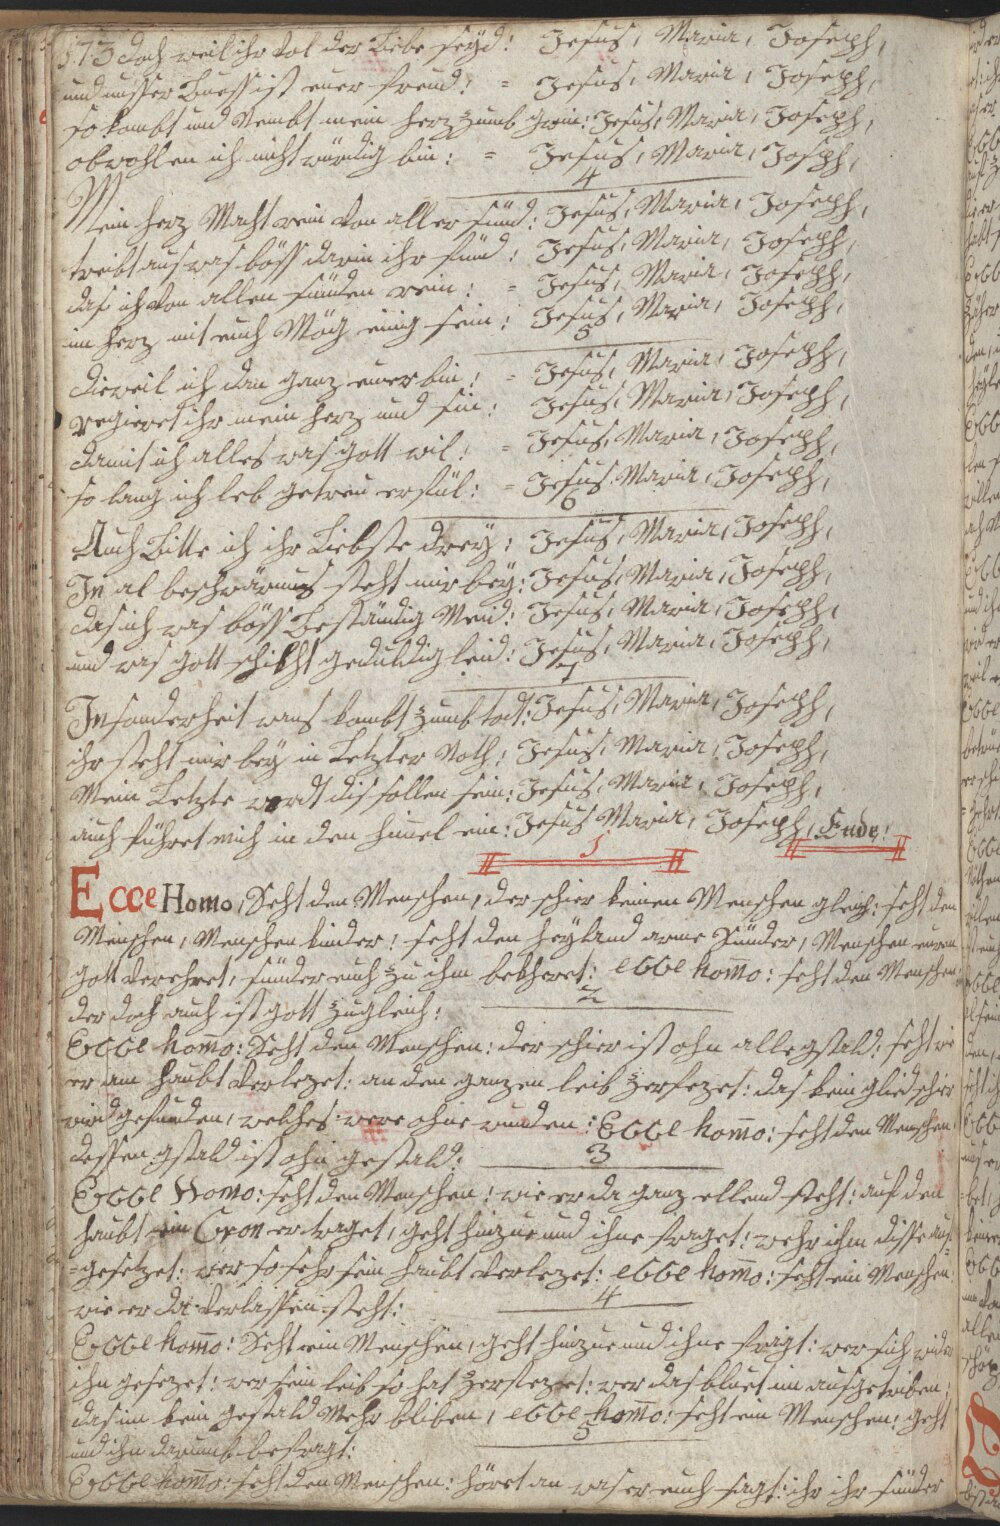 173 doch weil ihr vol der Liebe seyd: Jesus, Maria, Joseph,
und unsser Buess ist euer freud: = Jesus, Maria, Joseph,
so kombt und Nembt mein herz zumb gwin: Jesus, Maria, Joseph,
obwohlen ich nicht würdig bin: = Jesus, Maria, Joseph,
4
Mein herz Macht rein von aller sünd: Jesus, Maria, Joseph,
treibt aus was böss darin ihr fünd: Jesus, Maria, Joseph,
das ich von allen sünden rein: = Jesus, Maria, Joseph,
im herz mit euch Mög einig sein: Jesus, Maria, Joseph,
5
dieweil ich dan ganz euer bin: = Jesus, Maria, Joseph,
regieret ihr mein herz und sin: Jesus, Maria, Joseph,
damit ich alles was Gott wil: = Jesus, Maria, Joseph,
so lang ich leb getreu erfül: = Jesus, Maria, Joseph,
6
Auch Bitte ich ihr Liebste drey: Jesus, Maria, Joseph,
In al beschwärnus steht mir bey: Jesus, Maria, Joseph,
das ich was böss Beständig Meid: Jesus, Maria, Joseph,
und was Gott schikht gedultig leid: Jesus, Maria, Joseph,
7
Insonderheit wans kombt zumb tod: Jesus, Maria, Joseph,
ihr steht mir bey in Letzter Noth: Jesus, Maria, Joseph,
Mein Letzte wordt dis sollen sein: Jesus, Maria, Joseph,
auch führet mich in den himel ein: Jesus Maria, Joseph, Ende!
1
Ecce Homo, Seht den Menschen, der schier keinen Menschen gleich: seht den
Menschen, Menschen kinder! seht den heyland arme Sünder, Menschen euren
Gott verehret, sünder euch zu ihm bekheret: ecce homo: seht den Menschen
der doch auch ist Gott zugleich:
2
Ecce homo: Seht den Menschen: der schier ist ohn alle gstald: seht wie
er am haubt verlezet: an den ganzen leib zersezet: das kein glied schier
wird gefunden, welches were ohne wunden: Ecce homo: seht den Menschen
dessen gstald ist ohn gestald:
3
Ecce Homo: seht den Menschen: wie er da ganz ellend steht: auf den
haubt ein Cron er traget, geht hinzue und ihne fraget: wehr ihm disse auf=
=gesetzet: wer so sehr sein haubt verlezet: ecce homo: seht ein Menschen
wie er da verlassen steht:
4
Ecce homo: Seht ein Menschen, geht hinzue und ihne fragt: wer sich wider
ihn gesezet: wer sein leib so hat zersezet: wer das bluet im ausgetriben:
das im kein gestald Mehr bliben, ecce homo: seht ein Menschen: geht
und ihn darumb befragt:
5
Ecce homo: seht den Menschen: höret an was er euch sagt: ihr ihr sünder